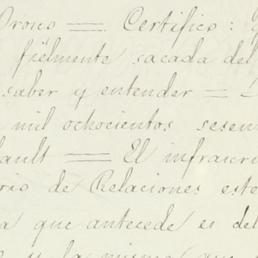 Orono = Certifico :
fielmente sacada del
saber y entender =
mil ochocientos sesen
ault = El infrascri
rio de Relaciones este
a que antecede es del
y la misma que